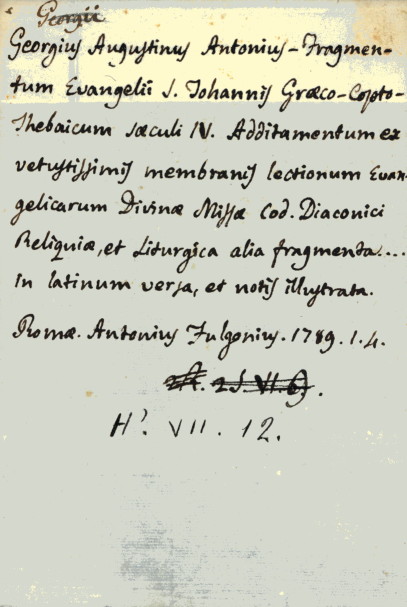 Georgii
Georgius Augustinus Antonius - Fragmen-
tum Evangelii S. Johannis Græco-Copto-
Thebaicum sæculi IV. Additamentum ex
vetustissimis membranis lectionum Evan-
gelicarum Divinæ Missæ Cod. Diaconici
Reliquiæ, et Liturgica alia fragmenta....
in latinum versa, et notis illustrata.
Romæ. Antonius Fulgonius. 1789. 1.4.
VI.
H? VII. 12.